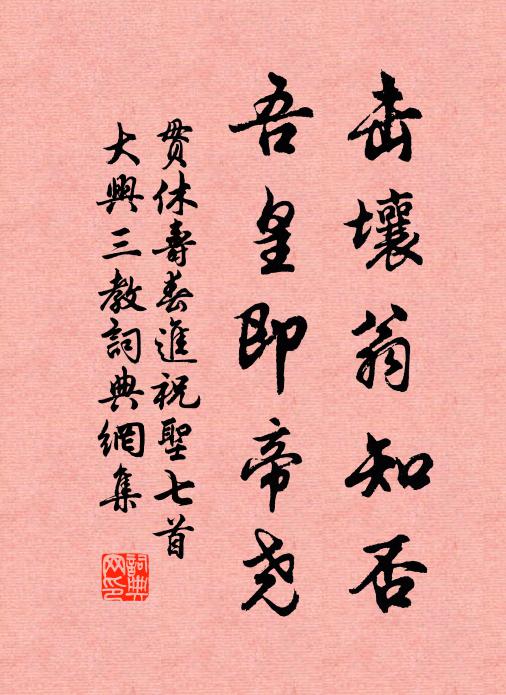 击壤翁知否
吾皇即帝尧
贯休寿春进祝圣七首
大兴三教词典网集
词典网印